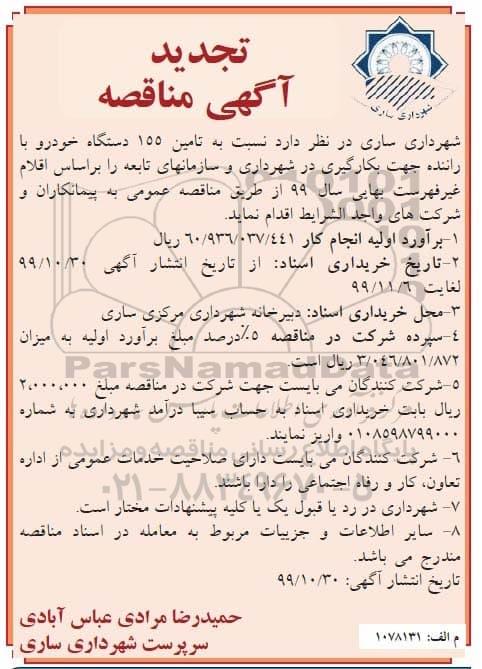 تجدید
آگهی مناقصه
شهرداری ساری
شهرداری ساری در نظر دارد نسبت به تامین ۱۵۵ دستگاه خودرو با
راننده جهت بکارگیری در شهرداری و سازمانهای تابعه را براساس اقلام
غیرفهرست بهایی سال ۹۹ از طریق مناقصه عمومی به پیمانکاران و
شرکت های واجد الشرایط اقدام نماید.
۱-برآورد اولیه انجام کار ۶۰/۹۳۶/۰۳۷/۴۴۱ ریال
۲-تاریخ خریداری اسناد: از تاریخ انتشار آگهی ۹۹/۱۰/۳۰
لغایت ۹۹/۱۱/۶
۳-محل خریداری اسناد: دبیرخانه شهرداری مرکزی ساری
۴-سپرده شرکت در مناقصه ۵٪درصد مبلغ برآورد اولیه به میزان
۳/۰۴۶/۸۰۱/۸۷۲ ریال است.
ParsNamadData
۵-شرکت کنندگان می بایست جهت شرکت در مناقصه مبلغ ۲،۰۰۰،۰۰۰
ریال بابت خریداری اسناد به حساب سیبا درآمد شهرداری به شماره
۰۱۰۸۵۹۸۷۹۹۰۰۰ واریز نمایند.
پایگاه اطلاع رسانی مناقصه و مزایده
۶- شرکت کنندگان می بایست دارای صلاحیت خدمات عمومی از اداره
تعاون، کار و رفاه اجتماعی را دارا باشند.
۰۲۱-۸۸۳۴۹۶۷۰-۵
۷- شهرداری در رد یا قبول یک یا کلیه پیشنهادات مختار است.
۸- سایر اطلاعات و جزییات مربوط به معامله در اسناد مناقصه
مندرج می باشد.
تاریخ انتشار آگهی: ۹۹/۱۰/۳۰
حمیدرضا مرادی عباس آبادی
سرپرست شهرداری ساری
م الف: ۱۰۷۸۱۳۱